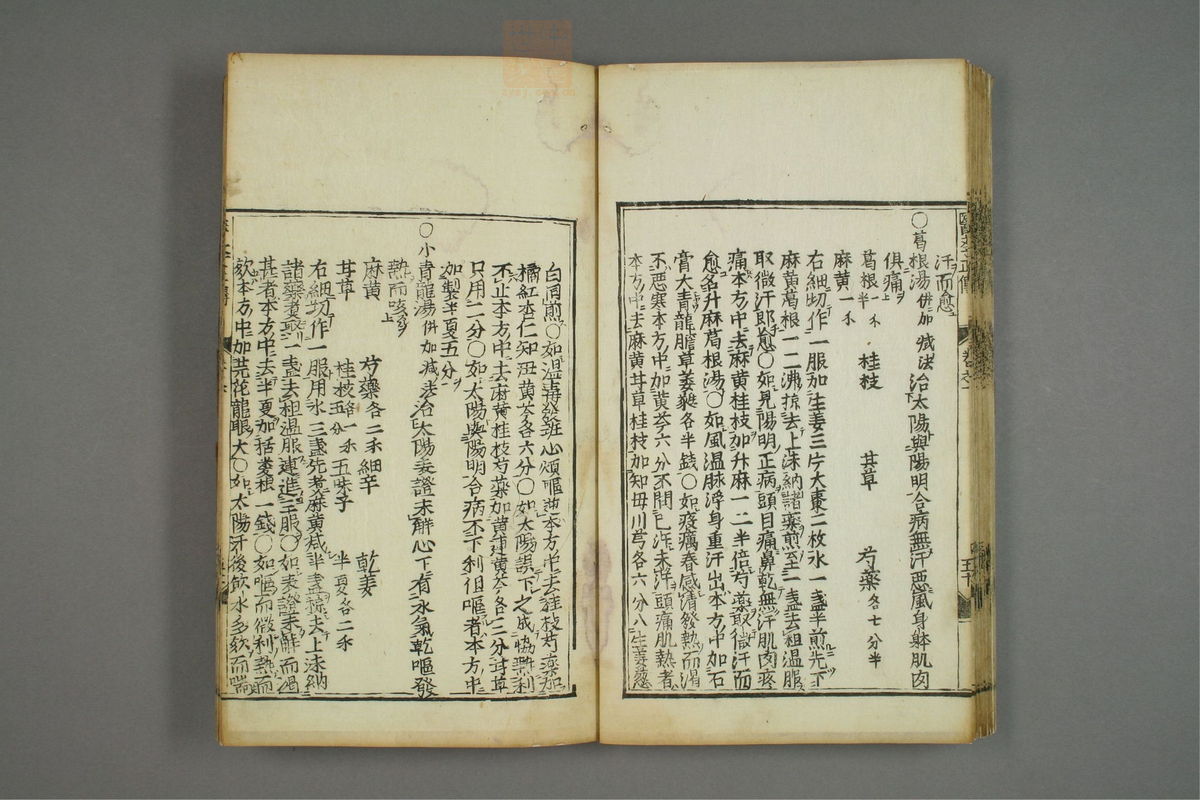 汗而愈
○葛根湯併加减法治太陽與陽明合病無汗惡風身躰肌肉
俱痛
葛根一半 桂枝 甘草 芍藥各七分半
麻黄一
右細切作一服加生姜三片大棗二枚水一盞半煎先下
麻黄葛根一二沸掠去上沫納諸藥煎至一盞去粗温服
取微汗即愈○如見陽明正病頭目痛鼻乾無汗肌肉疼
痛本方中去麻黄桂枝加升麻一二半倍芍藥取微汗而
愈名升麻葛根湯○如風温脉浮身重汗出本方中加石
膏大青龍膽草萎蕤各半錢○如疫癘春感清發熱而渴
不惡寒本方中加黄芩六分不問已汗未汗頭痛肌熱者
本方中去麻黄甘草桂枝加知母川芎各六分入生姜葱
白同煎○如温毒發斑心煩嘔逆本方中去桂枝芍藥加
橘紅杏仁知母黄芩各六分○如太陽誤下之成協熱利
不止本方中去麻黄桂枝芍藥加黄連黄芩各三分甘草
只用二分○如太陽與陽明合病不下利但嘔者本方中
加製半夏五分
○小青龍湯併加减法治太陽表證未解心下有水氣乾嘔發
熱而咳
麻黄 芍藥各二 細辛 乾姜
甘草 桂枝各一五分 五味子 半夏各二
右細切作一服用水三盞先煮麻黄减半盞掠去上沫納
諸藥煮取一盞去粗温服連進三服○如表證未解而渴
甚者本方中去半夏加栝蔞根一錢○如嘔而微利熱而
欬本方中加芫花龍眼大○如太陽汗後飲水多欬而喘